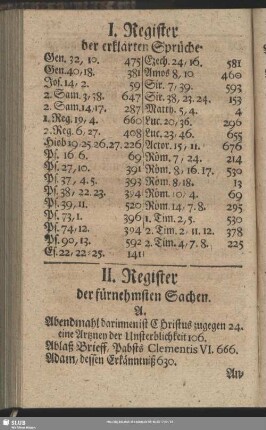 I. Register
der erklärten Sprüche.
Gen. 32, 10. 475
Gen. 40, 18. 381
Jos. 14, 2. 59
2. Sam. 3, 38. 647
2. Sam. 14, 17. 287
1. Reg. 19, 4. 660
2. Reg. 6, 27. 408
Hiob 19. 25. 26. 27. 226
Ps. 16. 6. 69
Ps. 27, 10. 391
Ps. 37, 4. 5. 393
Ps. 38, 22. 23. 394
Ps. 39, 11. 520
Ps. 73, 1. 396
Ps. 74, 12. 394
Ps. 90, 13. 592
Es. 22, 22. 25. 141
Ezech. 24, 16. 581
Amos 8, 10 460
Sir. 7, 39. 593
Sir. 38, 23. 24. 153
Matth. 5, 4. 4
Luc. 20, 36. 296
Luc. 23, 46. 655
Actor. 15, 11. 676
Röm. 7, 24. 214
Röm. 8, 16. 17. 530
Röm. 8, 18. 13
Röm. 10, 4. 69
Röm. 14, 7. 8. 295
1. Tim. 2, 5. 530
2. Tim. 2, 11. 12. 378
2. Tim. 4, 7. 8. 225
II. Register
der fürnehmsten Sachen.
A.
Abendmahl darinnen ist Christus zugegen 24.
eine Artzney der Unsterblichkeit 106.
Ablaß Brieff, Pabsts Clementis VI. 666.
Adam, dessen Erkänntniß 630.
An-